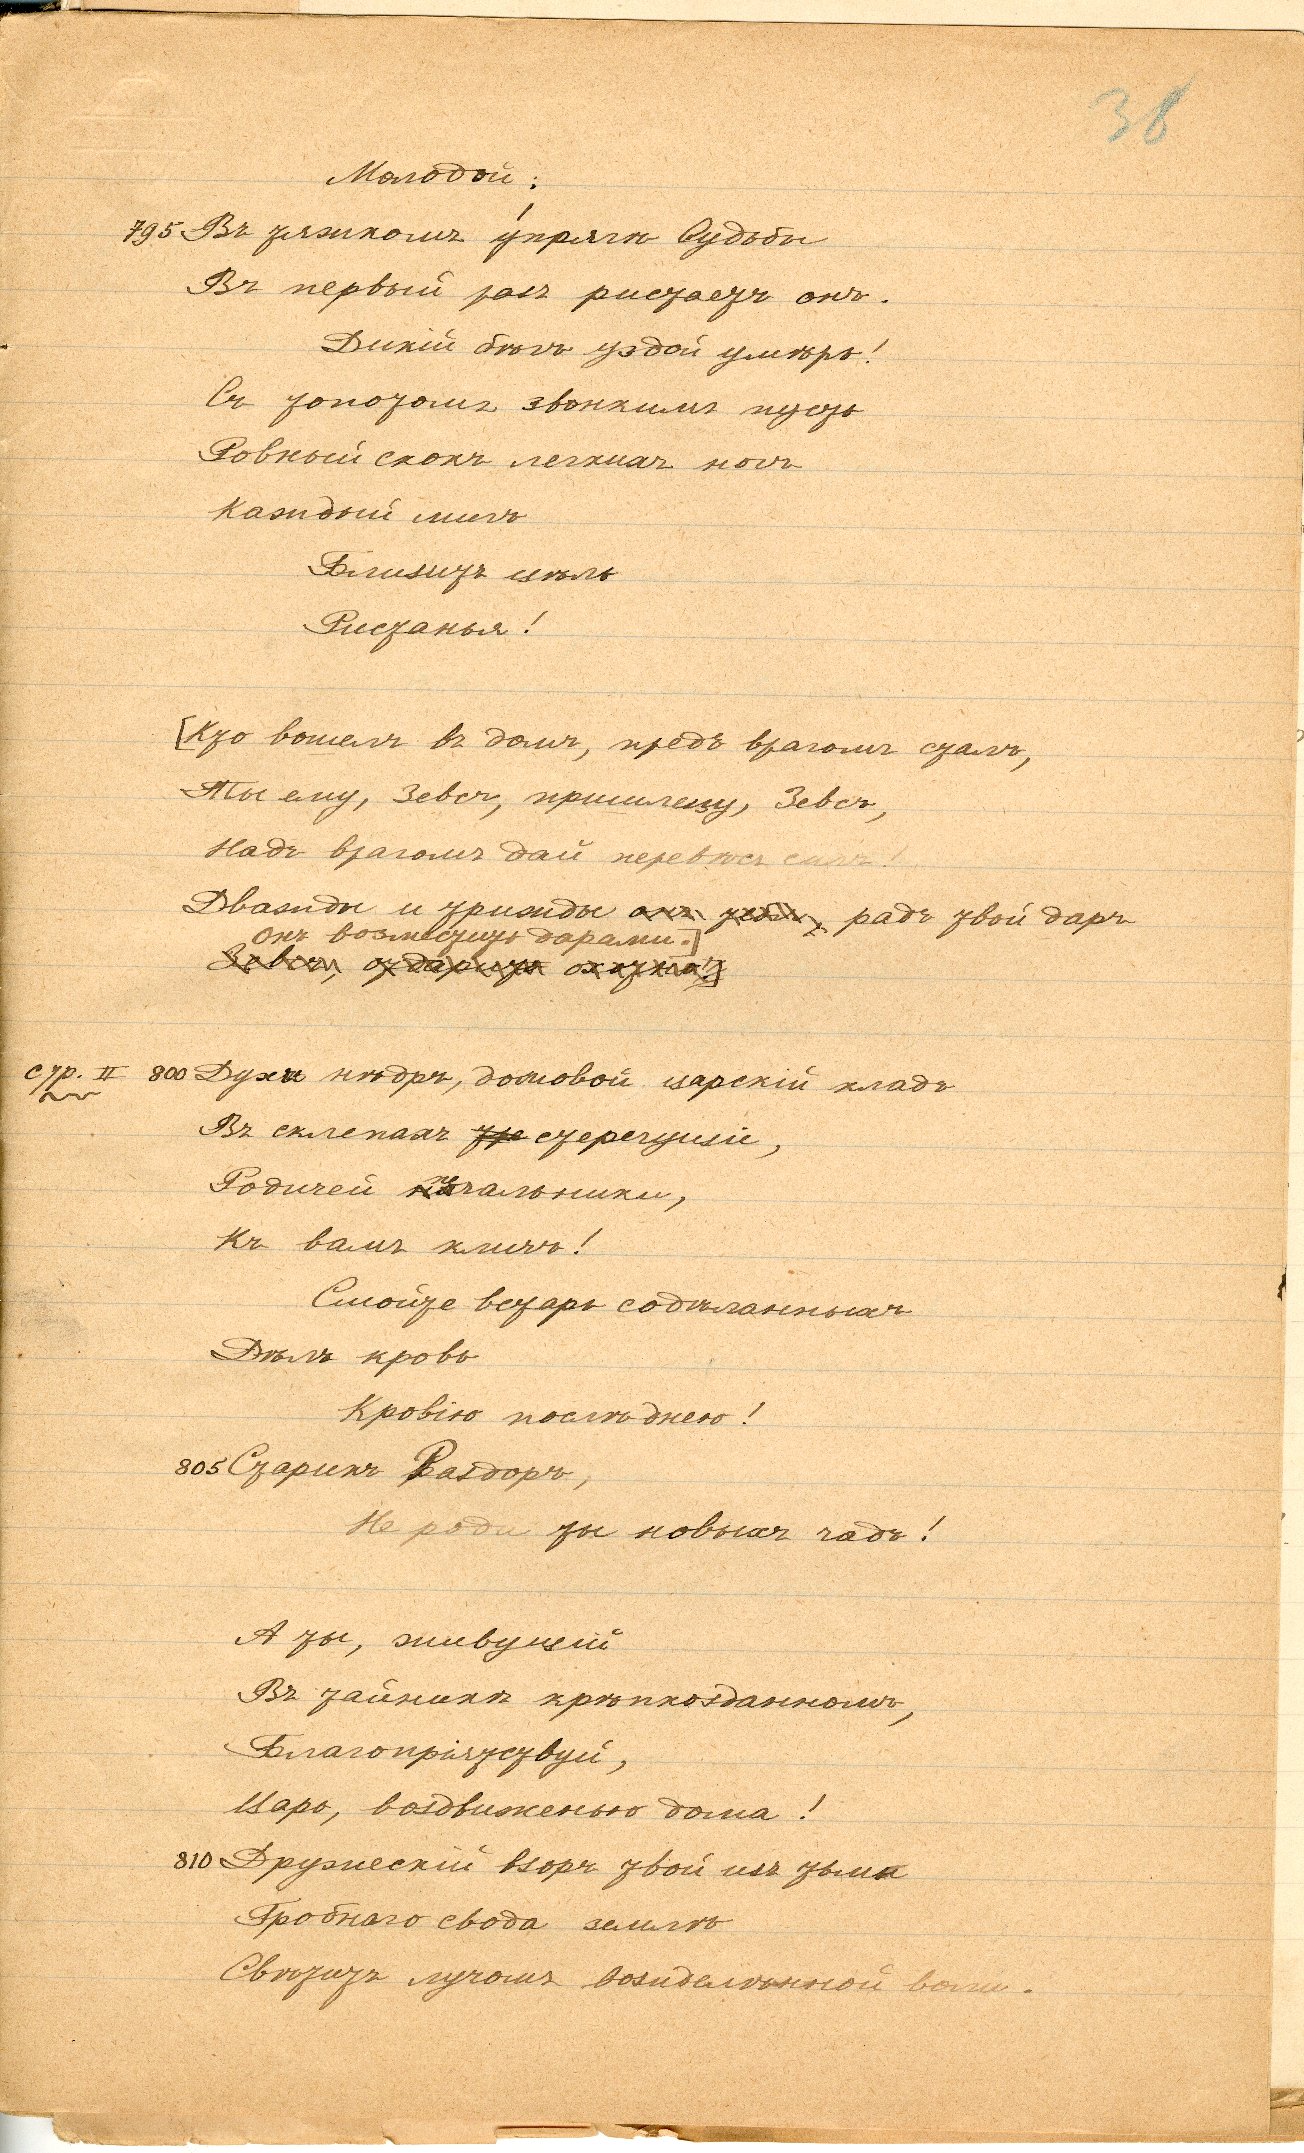 38
Молодой:
795 Въ тяжкомъ у́пряжѣ Судьбы
Въ первый разъ ристаетъ онъ.
Дикій бѣгъ уздой умѣрь!
Съ топотомъ звонкимъ пусть
Ровный скокъ легкихъ ногъ
Каждый мигъ
Близитъ цѣль
Ристанья!
[Кто вошелъ въ домъ, предъ врагомъ сталъ,
Ты ему, Зевсъ, пришлецу, Зевсъ,
Надъ врагомъ дай перевѣсъ силъ!
Дважды и трижды онъ тебѣ, радъ твой даръ
Онъ возместить дарами.]
Зевсъ, отдарить охотно!]
стр. II 800 Духи нѣдръ, домовой царскій кладъ
Въ склепахъ сте стерегущіе,
Родичей печальники,
Къ вамъ кличъ!
Смойте встарь содѣланныхъ
Дѣлъ кровь
Кровію послѣднею!
805 Старикъ Раздоръ,
Не роди ты новыхъ чадъ!
А ты, живущій
Въ тайникѣ крѣпкозданномъ,
Благопріятствуй,
Царь, воздвиженью дома!
810 Дружескій взоръ твой изъ тьмы
Гробнаго свода землѣ
Свѣтитъ лучомъ вожделѣнной воли.